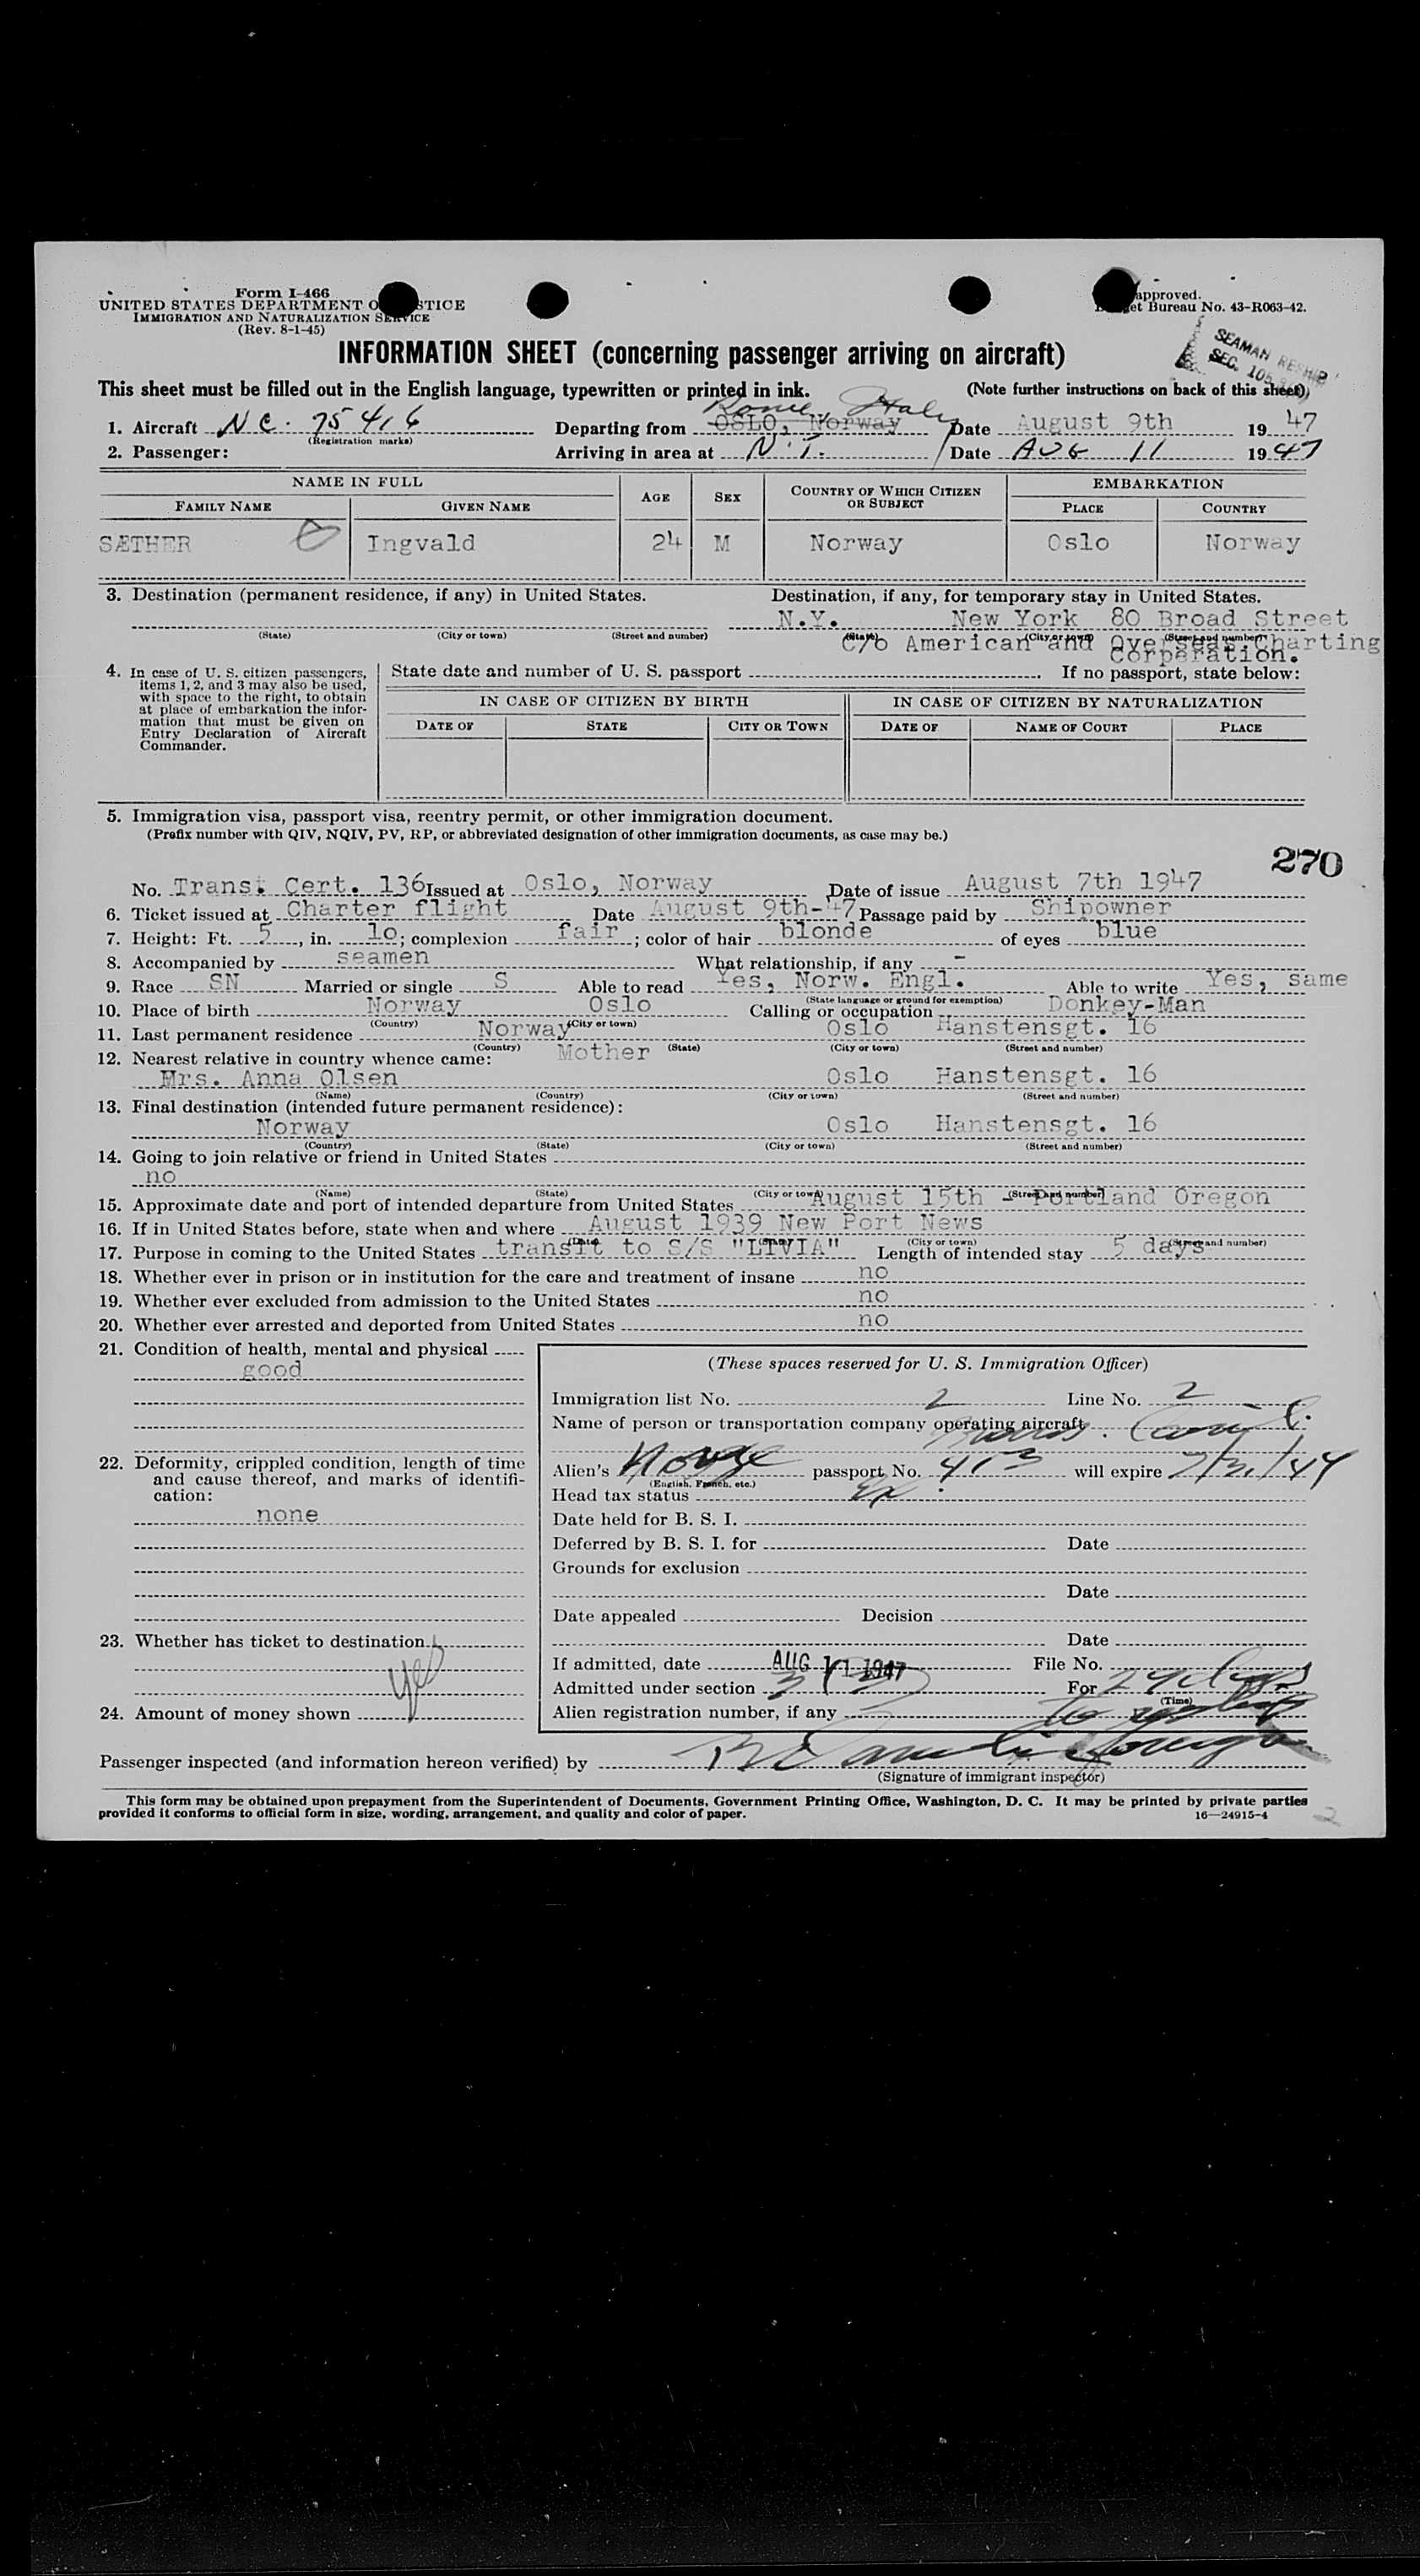 Form I-466
UNITED STATES DEPARTMENT O STICE
IMMIGRATION AND NATURALIZATION SERVICE
(Rev. 8-1-45)
approved.
et Bureau No. 43-R063-42.
SEAMAN
SEC. 105
INFORMATION SHEET (concerning passenger arriving on aircraft)
This sheet must be filled out in the English language, typewritten or printed in ink. (Note further instructions on back of this sheet)
Rome, Italy
1. Aircraft NC. 75416 Departing from OSLO, Norway Date August 9th 1947
(Registration marks)
2. Passenger: Arriving in area at N.Y. Date AUG 11 1947
NAME IN FULL AGE SEX COUNTRY OF WHICH CITIZEN OR SUBJECT EMBARKATION
FAMILY NAME GIVEN NAME PLACE COUNTRY
SÆTHER Ingvald 24 M Norway Oslo Norway
3. Destination (permanent residence, if any) in United States. Destination, if any, for temporary stay in United States.
N.Y. New York 80 Broad Street
(State) (City or town) (Street and number) (State) (City or town) (Street and number)
C/o American and Overseas Charting
Corperation.
4. In case of U. S. citizen passengers, items 1, 2, and 3 may also be used, with space to the right, to obtain at place of embarkation the information that must be given on Entry Declaration of Aircraft Commander.
State date and number of U. S. passport If no passport, state below:
IN CASE OF CITIZEN BY BIRTH IN CASE OF CITIZEN BY NATURALIZATION
DATE OF STATE CITY OR TOWN DATE OF NAME OF COURT PLACE
5. Immigration visa, passport visa, reentry permit, or other immigration document.
(Prefix number with QIV, NQIV, PV, RP, or abbreviated designation of other immigration documents, as case may be.)
270
No. Trans. Cert. 136 Issued at Oslo, Norway Date of issue August 7th 1947
6. Ticket issued at Charter flight Date August 9th-47 Passage paid by Shipowner
7. Height: Ft. 5, in. 10; complexion fair; color of hair blonde of eyes blue
8. Accompanied by seamen What relationship, if any -
9. Race SN Married or single S Able to read Yes, Norw. Engl. Able to write Yes, same
(State language or ground for exemption)
10. Place of birth Norway Oslo Calling or occupation Donkey-Man
(Country) (City or town)
11. Last permanent residence Norway Oslo Hanstensgt. 16
(Country) (State) (City or town) (Street and number)
12. Nearest relative in country whence came: Mother
Mrs. Anna Olsen Oslo Hanstensgt. 16
(Name) (Country) (City or town) (Street and number)
13. Final destination (intended future permanent residence):
Norway Oslo Hanstensgt. 16
(Country) (State) (City or town) (Street and number)
14. Going to join relative or friend in United States
no
(Name) (State) (City or town) (Street and number)
15. Approximate date and port of intended departure from United States August 15th - Portland Oregon
16. If in United States before, state when and where August 1939 New Port News
(Date) (State) (City or town) (Street and number)
17. Purpose in coming to the United States transit to S/S "LIVIA" Length of intended stay 5 days
18. Whether ever in prison or in institution for the care and treatment of insane no
19. Whether ever excluded from admission to the United States no
20. Whether ever arrested and deported from United States no
21. Condition of health, mental and physical
good
22. Deformity, crippled condition, length of time and cause thereof, and marks of identification:
none
23. Whether has ticket to destination
yes
24. Amount of money shown
(These spaces reserved for U. S. Immigration Officer)
Immigration list No. 2 Line No. 2
Name of person or transportation company operating aircraft
Alien's Norge passport No. 413 will expire
(English, French, etc.)
Head tax status Ex
Date held for B. S. I.
Deferred by B. S. I. for Date
Grounds for exclusion
Date
Date appealed Decision
Date
If admitted, date AUG 11 1947 File No.
Admitted under section 3(3) For 29 days
(Time)
Alien registration number, if any
Passenger inspected (and information hereon verified) by
(Signature of immigrant inspector)
This form may be obtained upon prepayment from the Superintendent of Documents, Government Printing Office, Washington, D. C. It may be printed by private parties
provided it conforms to official form in size, wording, arrangement, and quality and color of paper. 16—24915-4
2